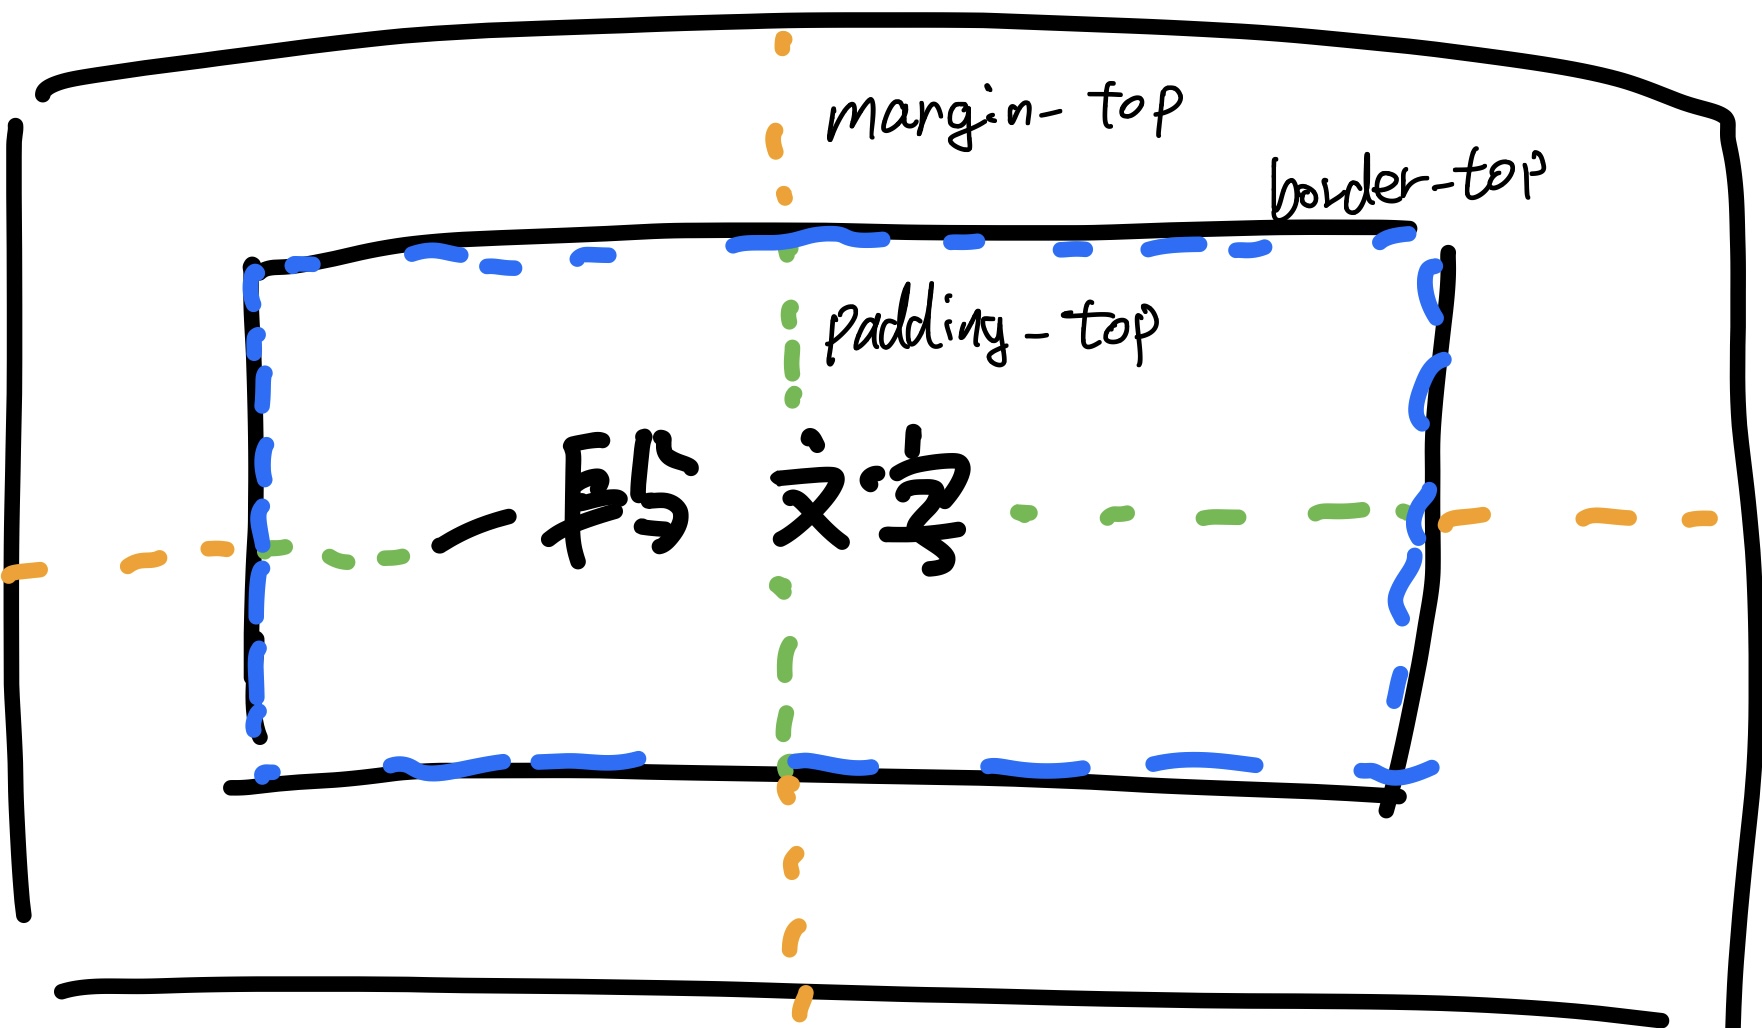 margin-top
border-top
padding-top
一段文字